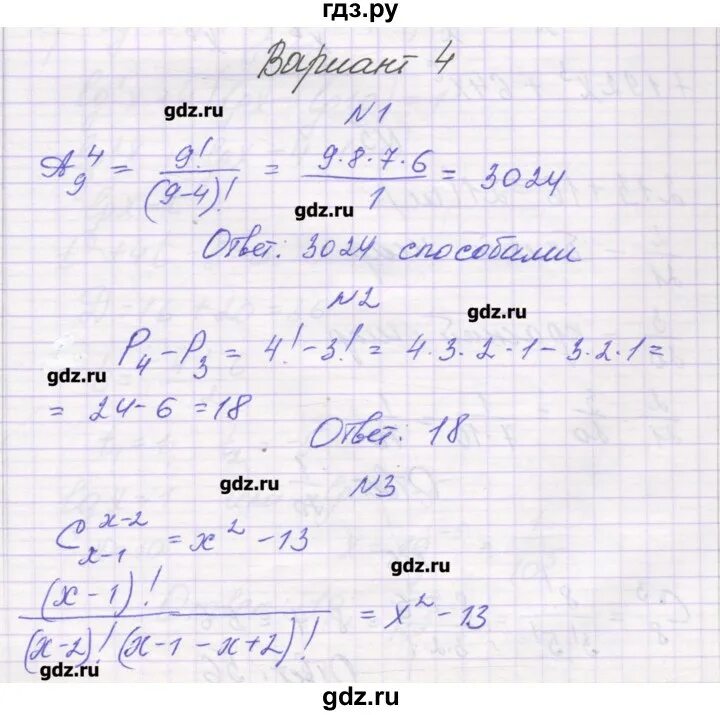 гдз.ру
Вариант 4
gdz.ru
N1
A₉⁴ = 9!/(9-4)! = 9·8·7·6/1 = 3024
gdz.ru
Ответ: 3024 способами
N2
gdz.ru
P₄ - P₃ = 4! - 3! = 4·3·2·1 - 3·2·1 =
gdz.ru
= 24 - 6 = 18
Ответ: 18
gdz.ru
N3
C_{x-1}^{x-2} = x² - 13
gdz.ru
(x-1)!/((x-2)!(x-1-x+2)!) = x² - 13
gdz.ru
gdz.ru